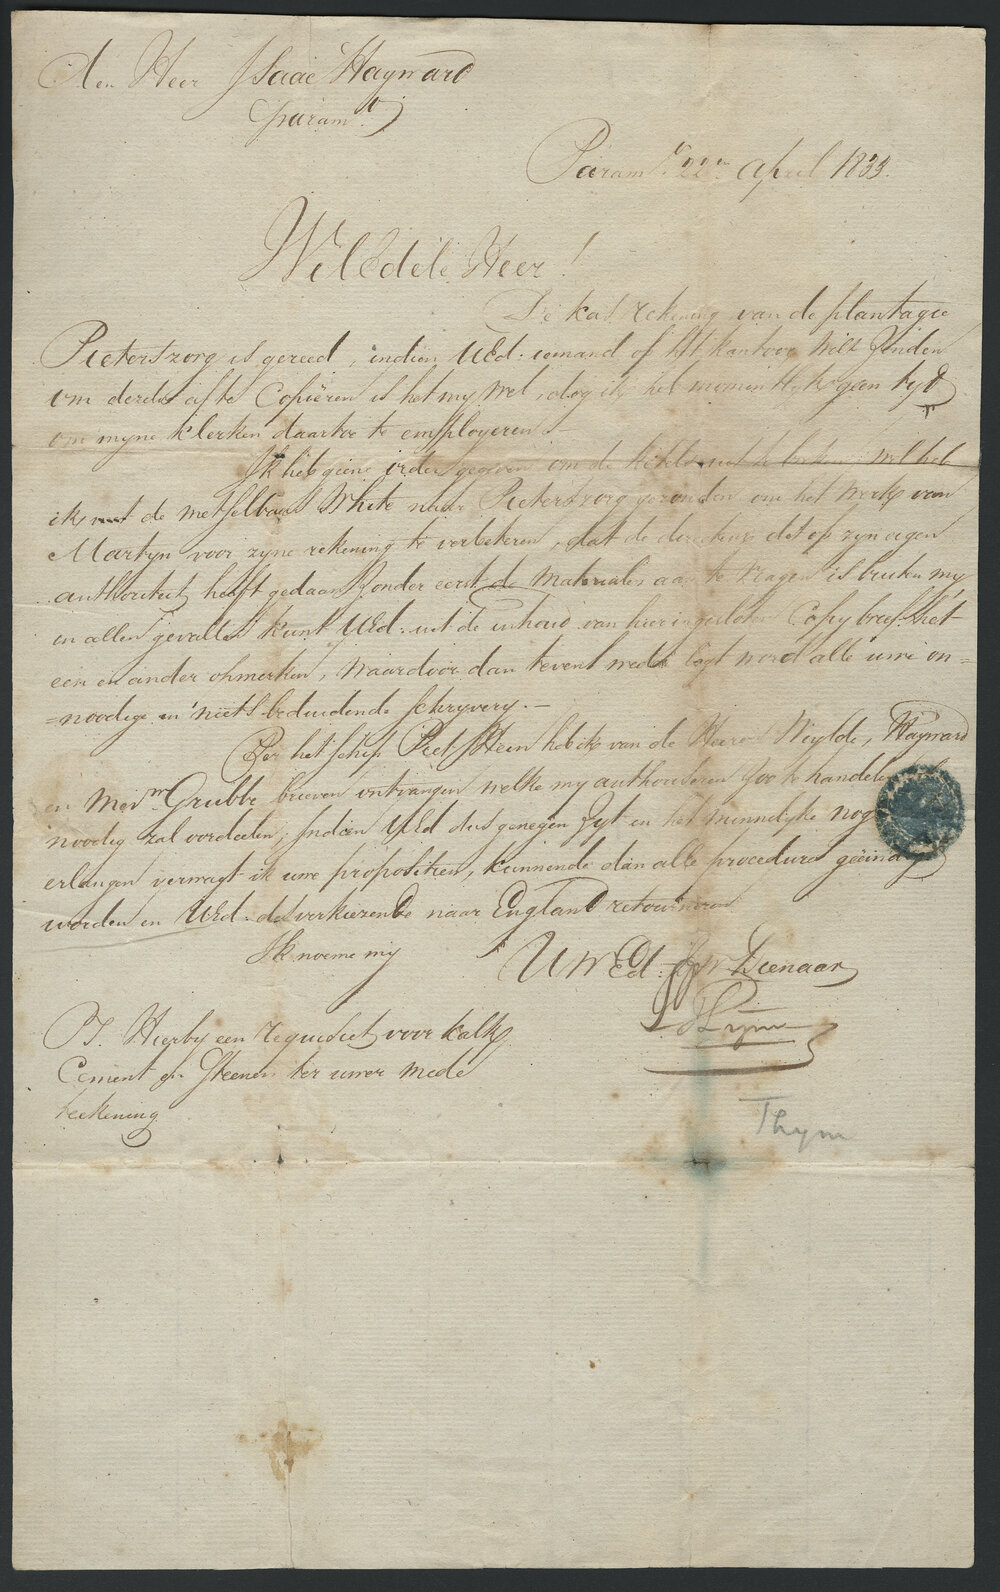 Aan Heer Isaac Hayward
Param.o
Param.o 22en April 1833.
WelEdele Heer!
De kas rekening van de plantagie
Pieterszorg is gereed, indien UEd. iemand op het kantoor wilt zenden
om dezelve af te Copiëren is het my wel, dog ik heb momentlyk geen tyd
om myne klerken daartoe te employeren.-
Ik heb geene order gegeven om de ketels uit te breken wel heb
ik de metselbaas White naar Pieterszorg gezonden om het werk van
Martyn voor zyne rekening te verbeteren, dat de directeur dat op zyn eigen
authoriteit heeft gedaan zonder eerst de materialen aan te vragen is buiten my
en allen gevallen kunt UEd. uit de inhoud van hier ingesloten Copy brief het
een en ander opmerken, waardoor dan tevens weder legt word alle uwe on=
=noodige en niets beduidende schryvery.-
Per het schip Piet Hein heb ik van de Heeren Weylde, Hayward
en Mevr.n Grubbe brieven ontvangen welke my authoriseren zoo te handelen
noodig zal oordeelen; Indien UEd dus genegen zyt en het minnelyke nog
erlangen verwagt ik uwe propositien, kunnende dan alle procedures geëindigt
worden en UEd. des verkiezende naar England retourneren
Ik noeme my
UWEd. Dienaar
Thym
PS. Hierby een requisiet voor kalk
Cement en Steenen ter uwer mede
teekening
Thym